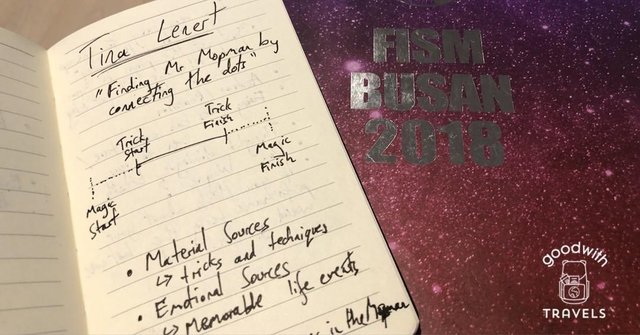 Tina Lenert
"Finding Mr Mopman by
connecting the dots"
Trick
Start
Trick
Finish
Magic
Start
Magic
Finish
• Material Sources
↳ tricks and techniques
• Emotional Sources
↳ Memorable life events
in the Mopman
FISM
BUSAN
2018
goodwith
TRAVELS